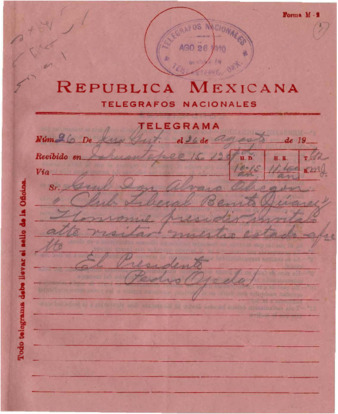 Forma M-2
TELEGRAFOS NACIONALES
AGO 26 1920
REPUBLICA MEXICANA
TELEGRAFOS NACIONALES
TELEGRAMA
Núm. 26 De el 26 de agosto de 19
Recibido en
H. D. H. R.
Vía
Sr. Gral Don Alvaro Obregon
Club Liberal Benito Juarez
Honrome presidir invita
atte visitar nuestro estado afse
Mo
El Presidente
Pedro Ojeda
Todo telegrama debe llevar el sello de la Oficina.